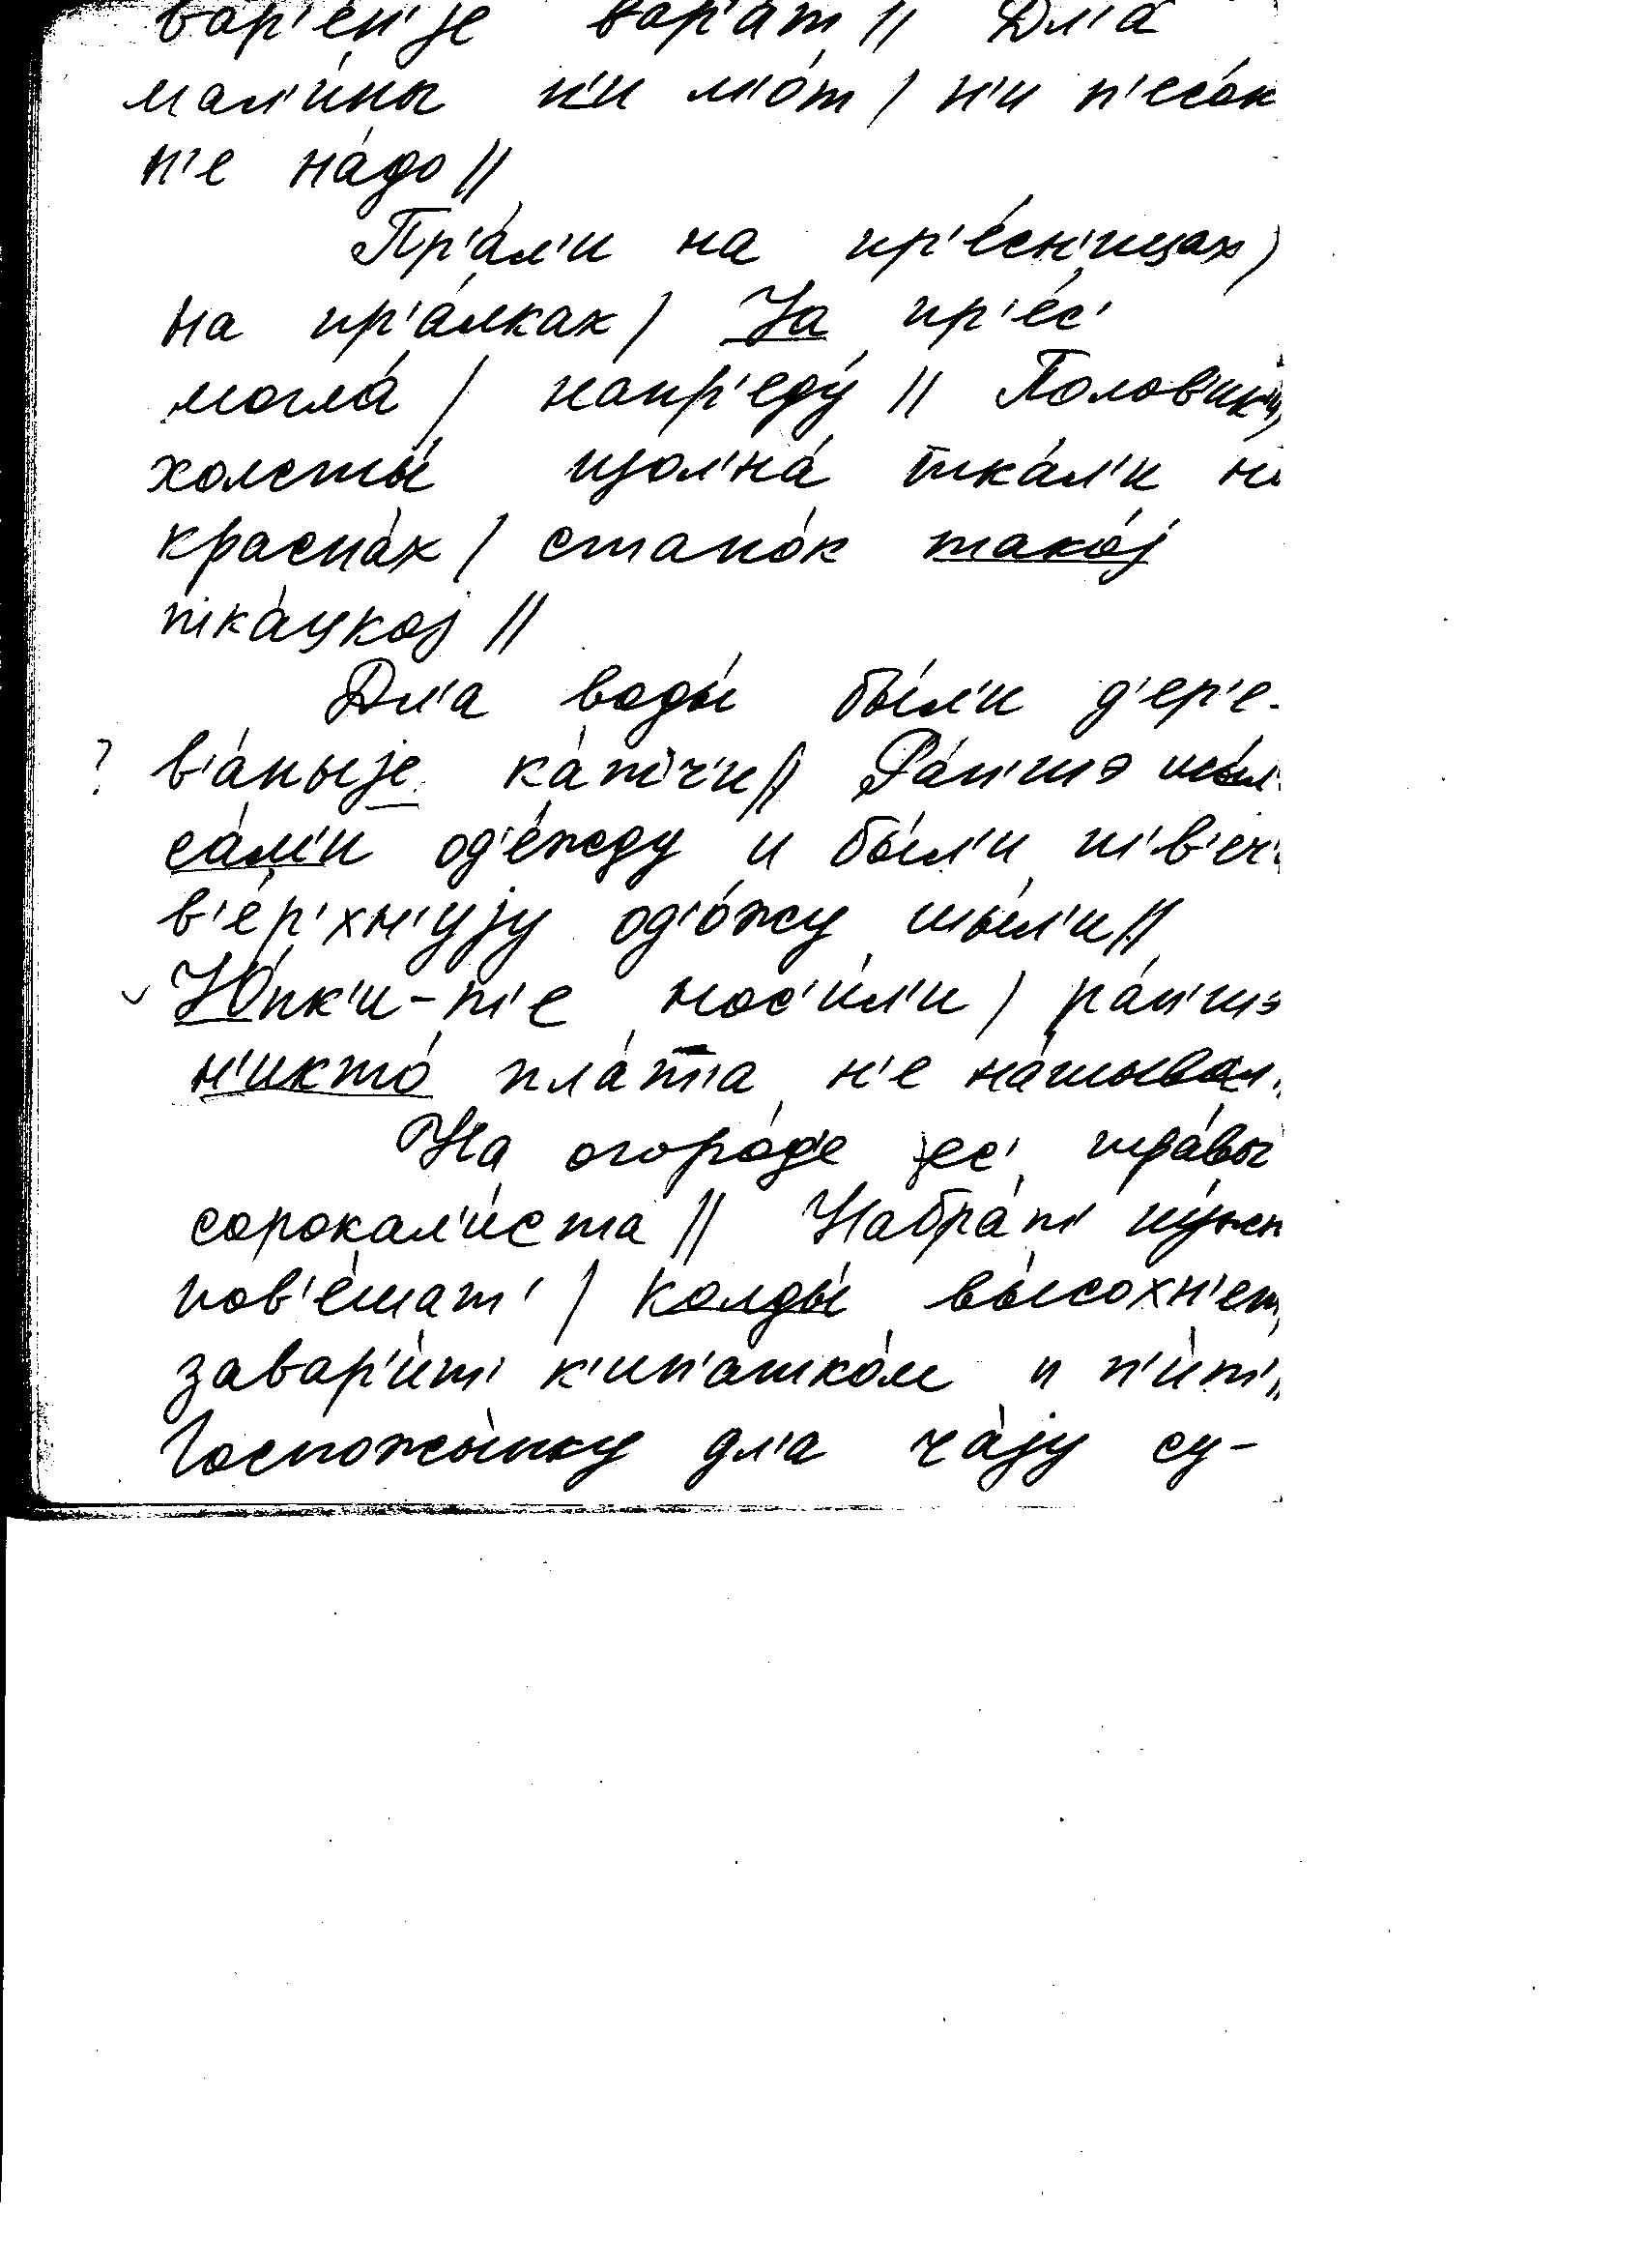 вар'е́н'jе вар'а́т // Дл'а
мал'и́ны н'и м'о́т / н'и п'есо́к
н'е на́до //
Пр'а́л'и на пр'е́сн'ицах /
на пр'а́лках / Jа пр'е́с'
могла́ / напр'еду́ // Полов'ик'и́,
холсты́ цолна́ тка́л'и на
красна́х / стано́к тако́j
тка́цкоj //
Дл'а воды́ бы́л'и д'ер'е-
? в'а́ныjе ка́тч'и // Ра́н'шэ
са́м'и од'е́жду и бы́л'и
в'е́р'хн'уjу од'о́жу мы́л'и //
Ю́пк'и-т'е нос'и́л'и / ра́н'шэ
н'икто́ пла́т'а н'е на́шывал
На огоро́д'е jес' тра́вы
сорокал'и́ста // Набра́т' ну́жн
пов'е́шат' / колды́ вы́сохн'ет,
завар'и́т' к'ип'атко́м и п'и́т' //
Госпожы́нку дл'а ча́jу су-